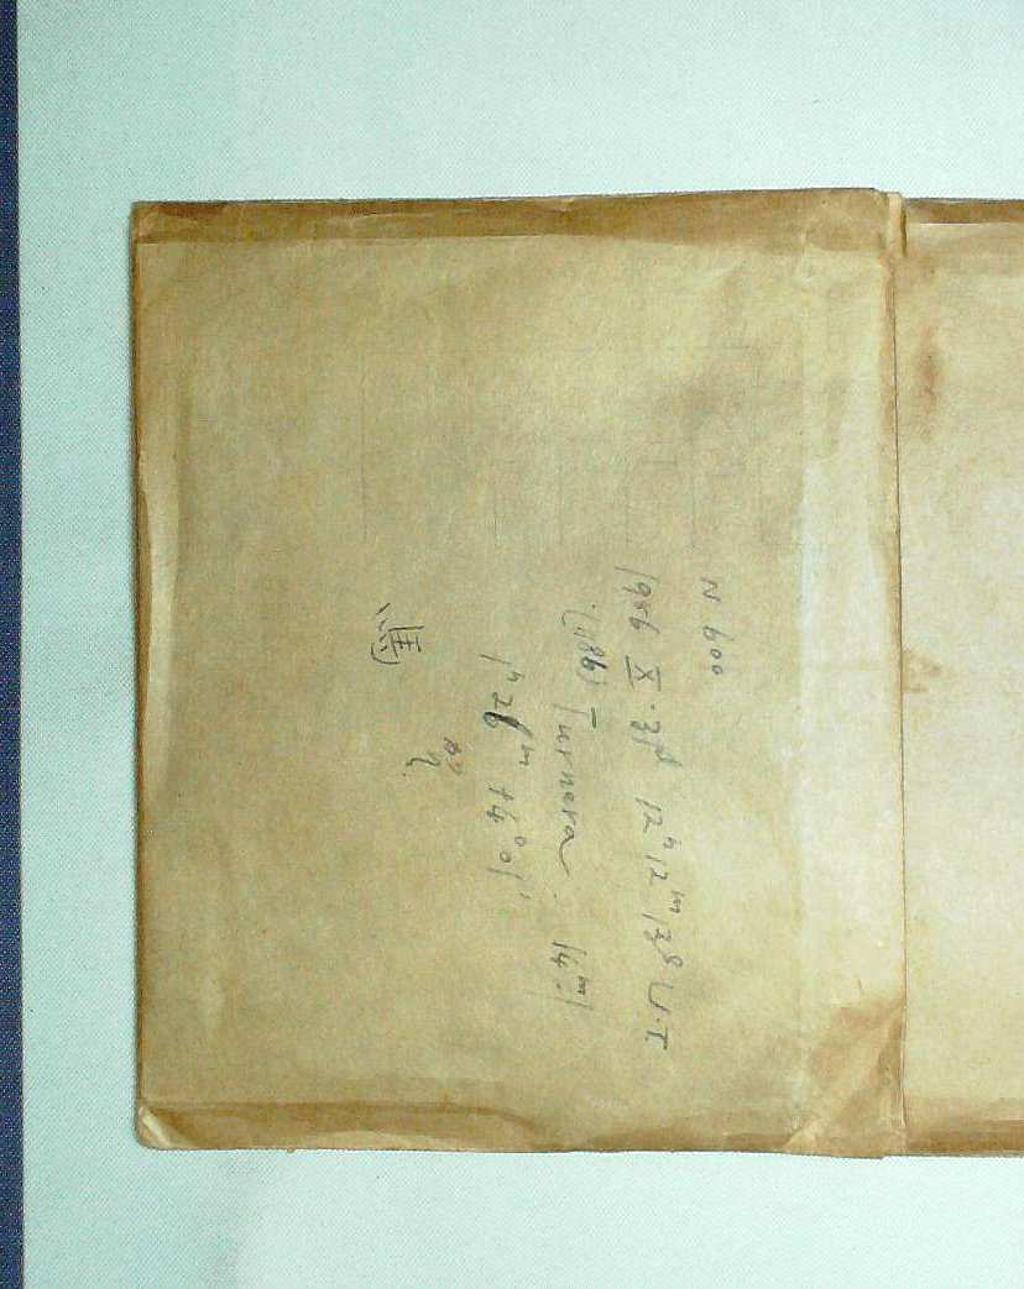 N 600
1956 X.31ᵈ 12ʰ 12ᵐ 13ˢ U.T
(1186) Turnera. 14ᵐ.1
1ʰ 26ᵐ +4° 01'
馬